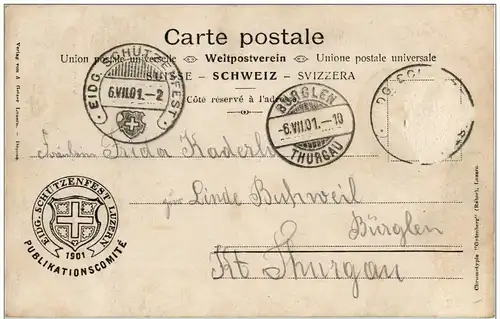 Carte postale
Union postale universelle Weltpostverein Unione postale universale
SUISSE – SCHWEIZ – SVIZZERA
Côté réservé à l'adresse
EIDG. SCHÜTZENFEST
6.VII.01.-2
BÜRGLEN
-6.VII.01.-10
THURGAU
Fräulein Frida Kaderli
zur Linde Buhweil
Bürglen
Kt. Thurgau
EIDG. SCHÜTZENFEST LUZERN
1901
PUBLIKATIONSCOMITÉ
Verlag von
Luzern.
Chromotypie "Gutenberg" (Räber), Luzern.